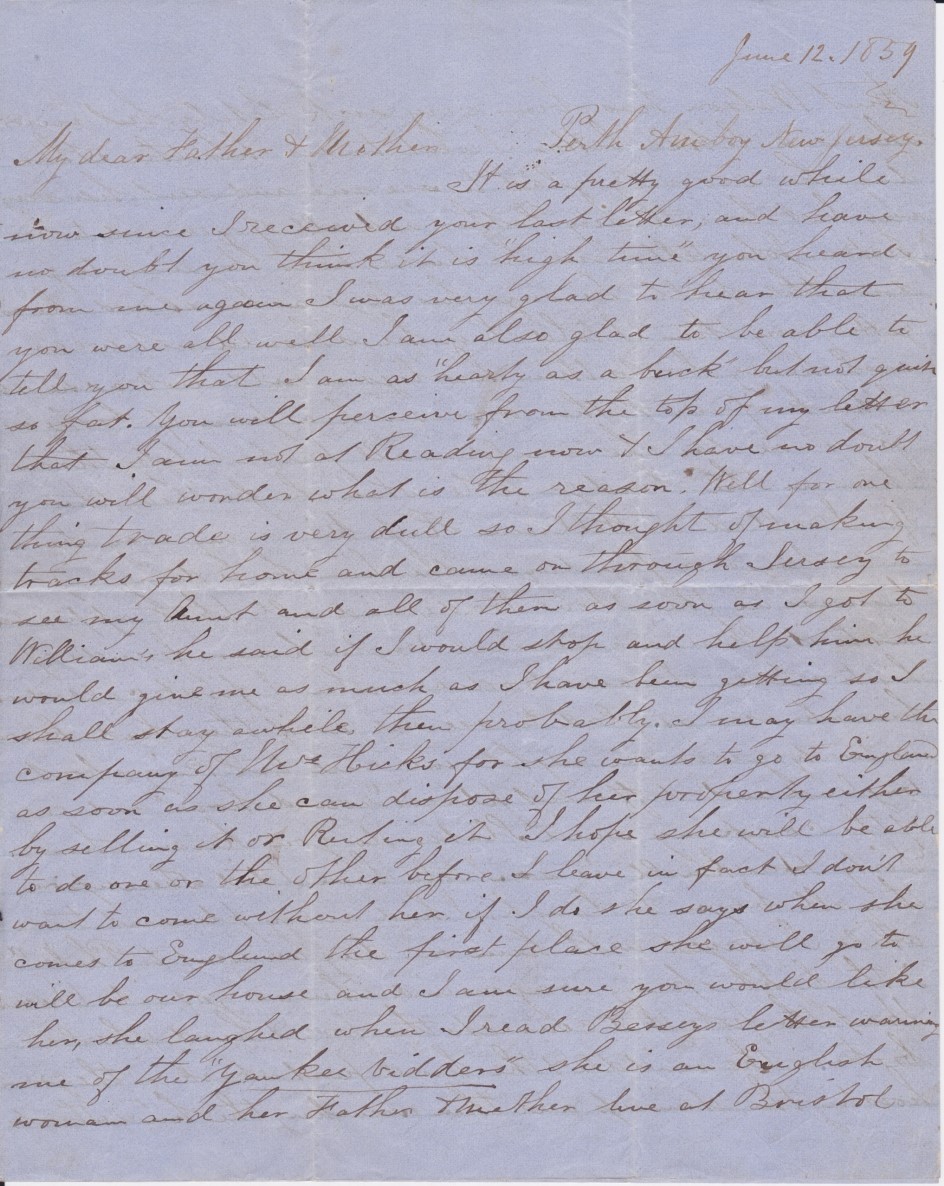 June 12. 1859
Perth Amboy New Jersey.
My dear Father & Mother
It is a pretty good while
now since I received your last letter, and have
no doubt you think it is "high time" you heard
from me again I was very glad to hear that
you were all well I am also glad to be able to
tell you that I am as "hearty as a buck" but not quite
so fat. You will perceive from the top of my letter
that I am not at Reading now & I have no doubt
you will wonder what is the reason. Well for one
thing trade is very dull so I thought of making
tracks for home and came on through Jersey to
see my Aunt and all of them as soon as I got to
William's he said if I would stop and help him he
would give me as much as I have been getting so I
shall stay awhile then probably. I may have the
company of Mrs Hicks for she wants to go to England
as soon as she can dispose of her property either
by selling it or Renting it I hope she will be able
to do one or the other before I leave in fact I don't
want to come without her if I do she says when she
comes to England the first place she will go to
will be our house and I am sure you would like
her, she laughed when I read Besseys letter warning
me of the "Yankee Vidders" she is an English
woman and her Father & Mother live at Bristol